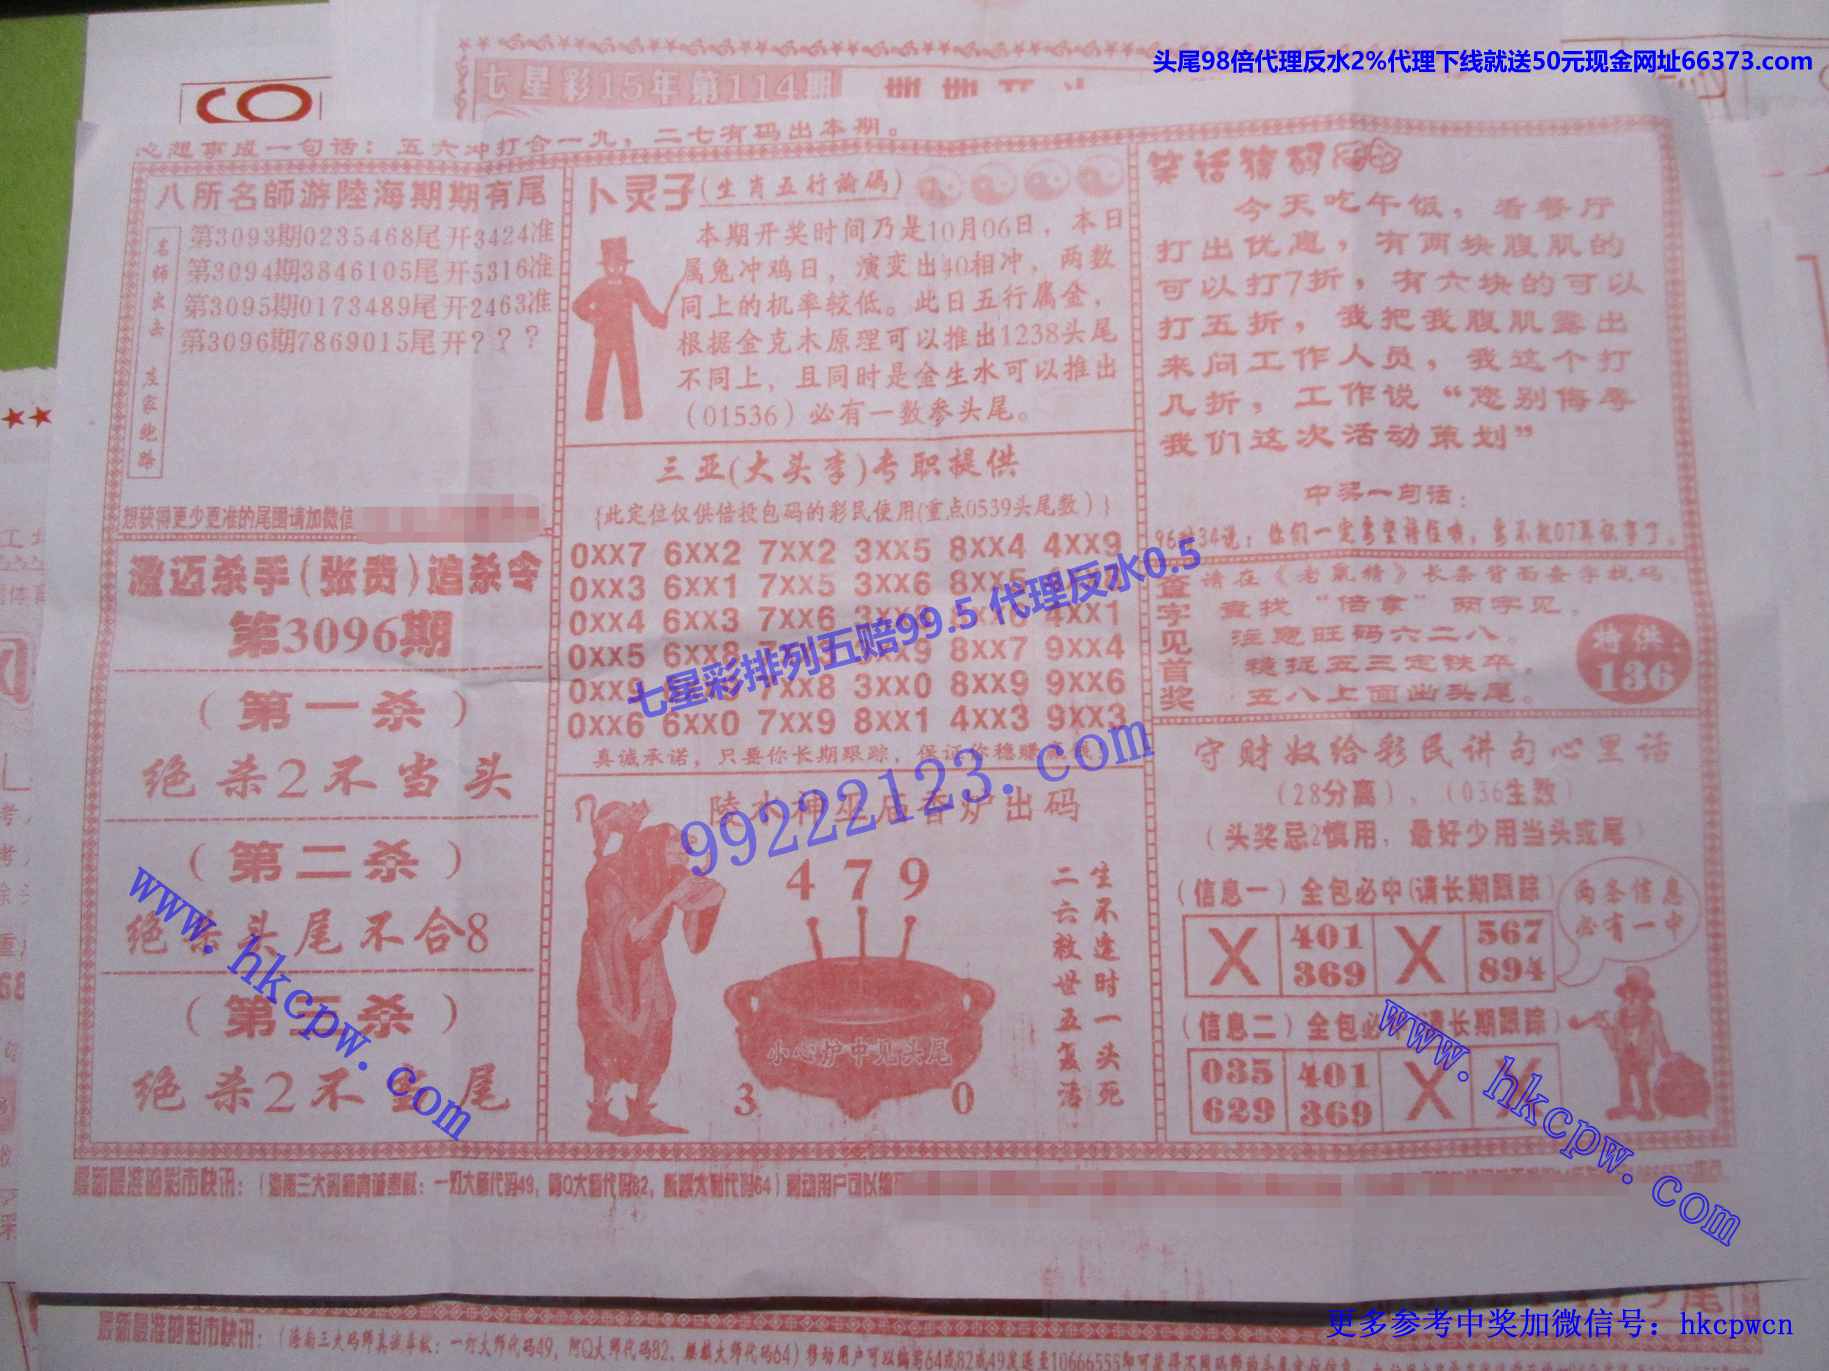 头尾98倍代理反水2%代理下线就送50元现金网址66373.com
七星彩15年第114期
心想事成一句话：五六冲打合一九，二七有码出本期。
八所名師游陸海期期有尾
名師出去 左家绝路
第3093期0235468尾开3424准
第3094期3846105尾开5316准
第3095期0173489尾开2463准
第3096期7869015尾开？？？
想获得更少更准的尾围请加微信
澄迈杀手(张贵)追杀令
第3096期
(第一杀)
绝杀2不当头
(第二杀)
绝杀头尾不合8
(第三杀)
绝杀2不坐尾
卜灵子(生肖五行論碼)
本期开奖时间乃是10月06日，本日
属兔冲鸡日，演变出40相冲，两数
同上的机率较低。此日五行属金，
根据金克木原理可以推出1238头尾
不同上，且同时是金生水可以推出
(01536)必有一数参头尾。
三亚(大头李)专职提供
{此定位仅供倍投包码的彩民使用(重点0539头尾数)}
0XX7 6XX2 7XX2 3XX5 8XX4 4XX9
0XX3 6XX1 7XX5 3XX6 8XX5
0XX4 6XX3 7XX6 4XX1
0XX5 6XX8 8XX7 9XX4
3XX0 8XX9 9XX6
0XX6 6XX0 7XX9 8XX1 4XX3 9XX3
真诚承诺，只要你长期跟踪，保证你稳赚
七星彩排列五赔99.5 代理反水0.5
99222123.com
陵水神巫庙香炉出码
4 7 9
小心炉中见头尾
3 0
生不逢时一头死
二六救世五复活
笑话猜码
今天吃午饭，看餐厅
打出优惠，有两块腹肌的
可以打7折，有六块的可以
打五折，我把我腹肌露出
来问工作人员，我这个打
几折，工作说“您别侮辱
我们这次活动策划”
中奖一句话：
查字见首奖
请在《老鼠精》长条背面查字找码，
查找“倍拿”两字见，
注意旺码六二八，
稳捉五三定铁卒，
五八上面出头尾。
特供：
136
守财奴给彩民讲句心里话
(28分离)、(036生数)
(头奖忌2慎用，最好少用当头或尾)
(信息一) 全包必中(请长期跟踪)
X 401 369 X 567 894
两条信息
必有一中
(信息二) 全包必中(请长期跟踪)
035 629 401 369 X X
www.hkcpw.com
www.hkcpw.com
最新最准的彩市快讯：(海南三大码师真诚奉献：一灯大师代码49，阿Q大师代码82，麒麟大师代码64)移动用户可以编
最新最准的彩市快讯：(海南三大码师真诚奉献：一灯大师代码49，阿Q大师代码82，麒麟大师代码64)移动用户可以编写64或82或49发送至10666555即可获得
更多参考中奖加微信号：hkcpwcn